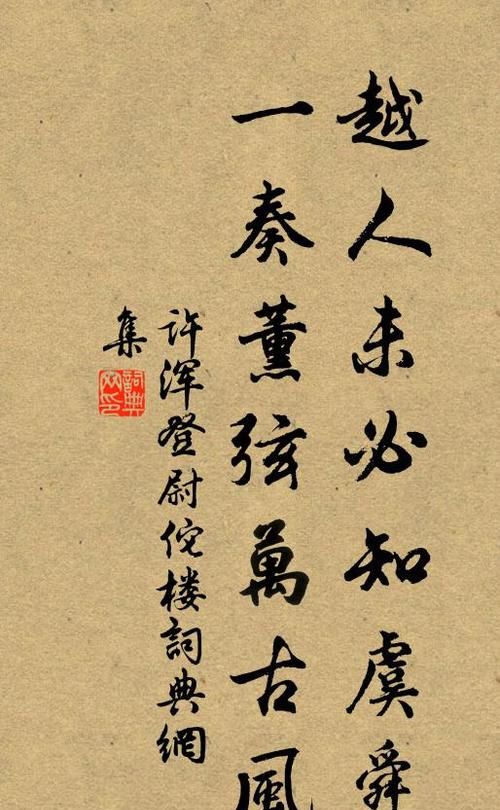 越人未必知虞舜
一奏薰弦萬古風
许浑登尉佗楼詞典網
集
詞典